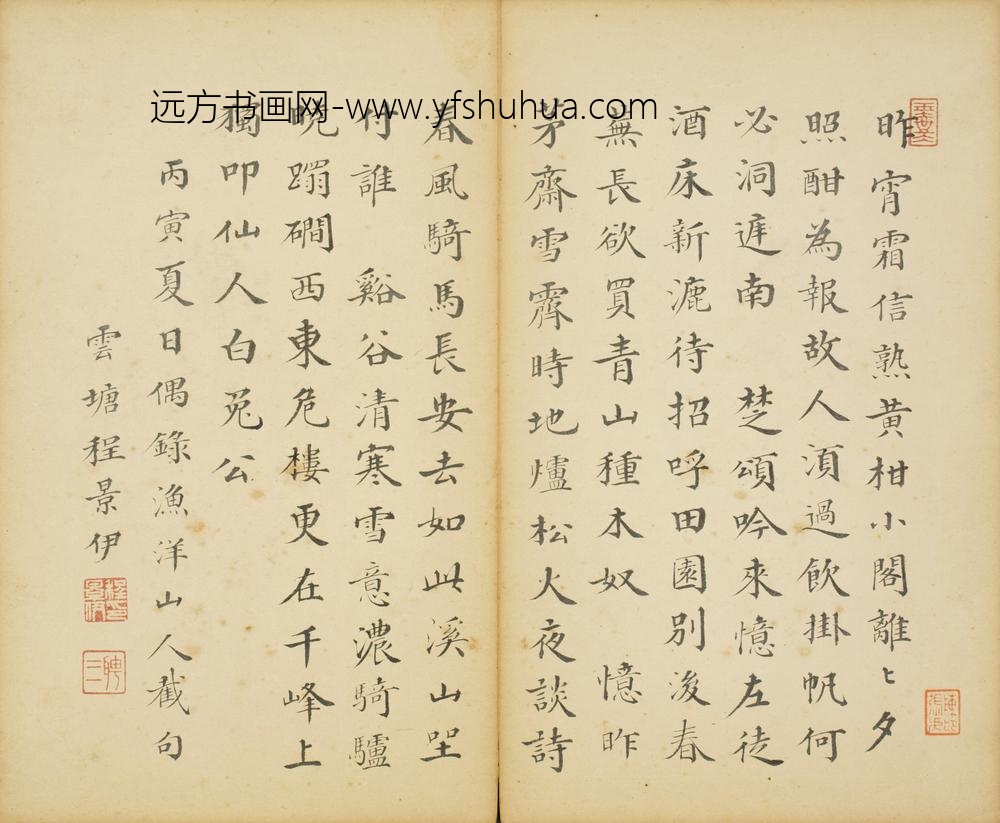 远方书画网-www.yfshuhua.com
昨宵霜信熟黄柑小閣離〻夕
照酣為報故人湏過飲掛帆何
必洞遅南 楚頌吟来憶左徒
酒床新漉待招呼田園别後春
蕪長欲買青山種木奴 憶昨
茅齋雪霽時地爐松火夜談詩
春風騎馬長安去如此溪山坐
付誰 谿谷清寒雪意濃騎驢
晚蹋磵西東危樓更在千峰上
獨叩仙人白兎公
丙寅夏日偶錄漁洋山人截句
雲塘程景伊